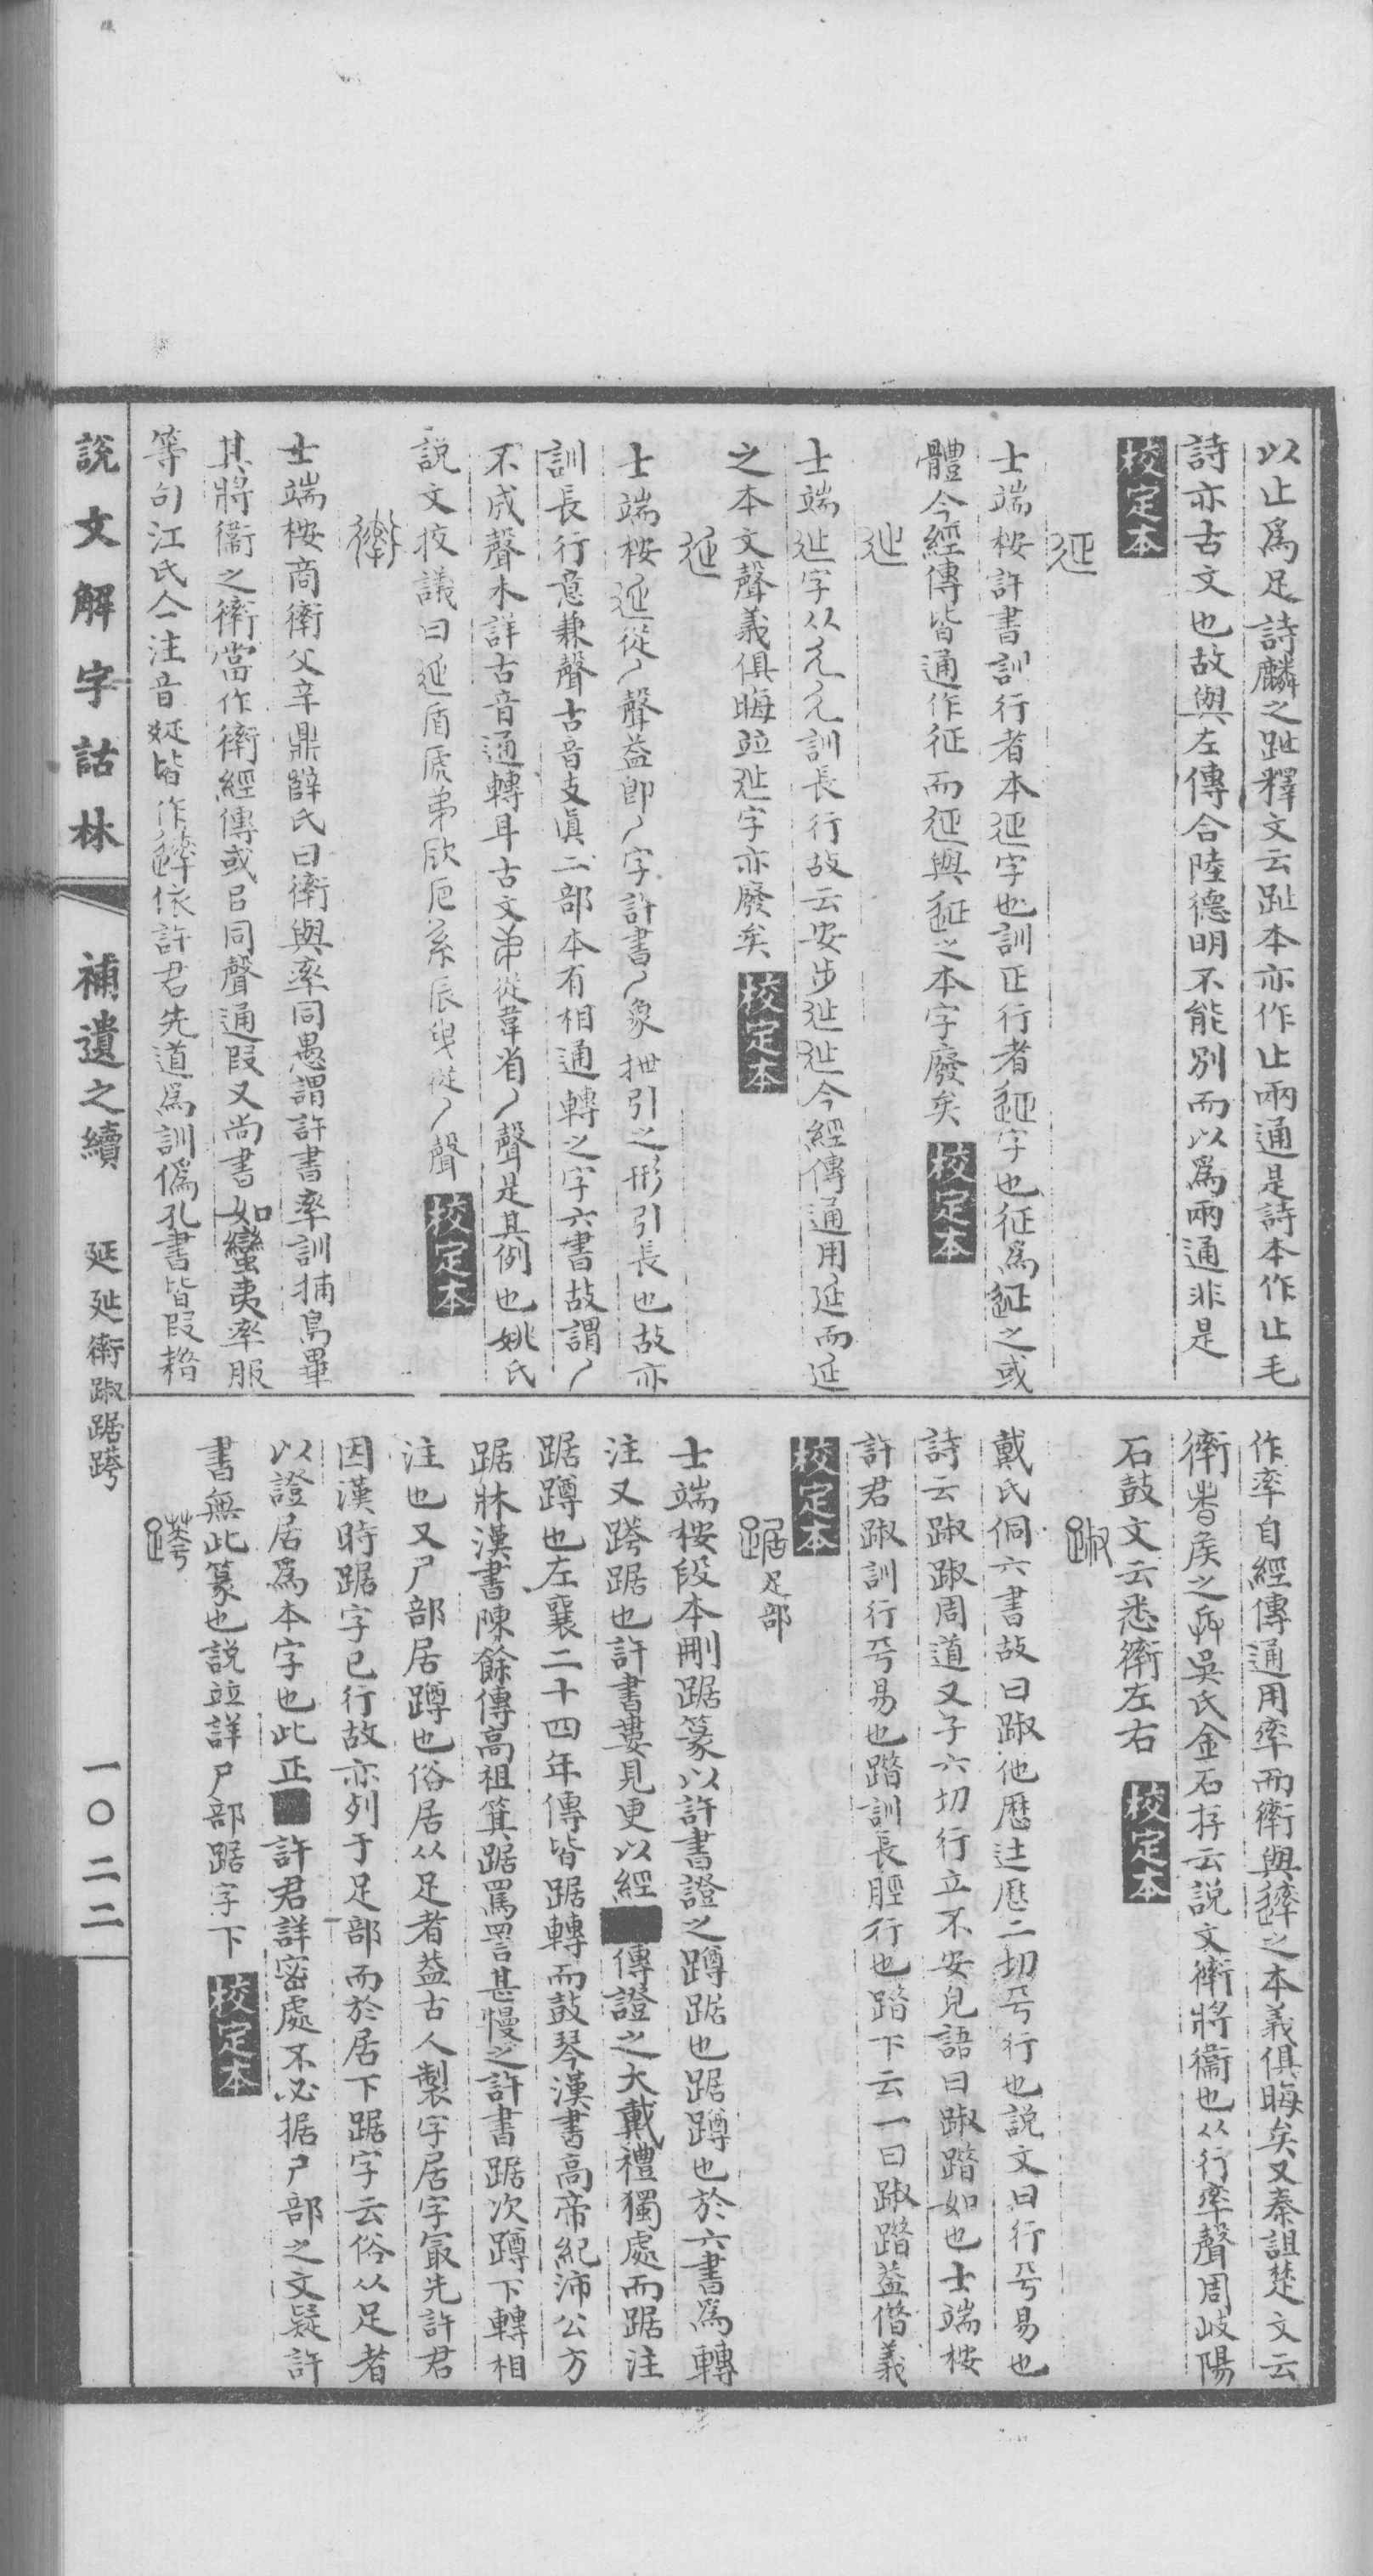 以止爲足詩麟之趾釋文云趾本亦作止兩通是詩本作止毛
詩亦古文也故與左傳合陸德明不能別而以爲兩通非是
校定本
延
士端桉許書訓行者本延字也訓正行者𨑭字也征爲𨑭之或
體今經傳皆通作征而延與𨑭之本字廢矣 校定本
㢟
士端㢟字从㢟訓長行故云安步㢟㢟今經傳通用延而延
之本文聲義俱晦竝㢟字亦廢矣 校定本
延
士端桉延從丿聲益卽丿字許書丿象抴引之形引長也故亦
訓長行意兼聲古音支眞二部本有相通轉之字六書故謂丿
不成聲木詳古音通轉耳古文弟從韋省丿聲是其例也姚氏
説文校議曰延盾虒弟欥厄系辰曳從丿聲 校定本
䘗
士端桉商䘗父辛鼎辥氏曰䘗與率同愚謂許書率訓捕鳥畢
其將衞之䘗當作䘗經傳或㠯同聲通叚又尚書如蠻夷率服
等句江氏人注音延皆作𨘺依許君先道爲訓僞孔書皆叚㨿
作率自經傳通用率而䘗與𨘺之本義俱晦矣又秦詛楚文云
䘗者矦之兵吳氏金石存云説文䘗將衞也从行率聲周岐陽
石鼓文云悉䘗左右 校定本
踧
戴氏侗六書故曰踧他歷迬歷二切平行也説文曰行平易也
詩云踧踧周道又子六切行立不安皃語曰踧踖如也士端桉
許君踧訓行平易也踖訓長脛行也踖下云一曰踧踖益借義
校定本
踞 足部
士端桉段本刪踞篆以許書證之蹲踞也踞蹲也於六書爲轉
注又跨踞也許書婁見更以經傳證之大戴禮獨處而踞注
踞蹲也左襄二十四年傳皆踞轉而鼓琴漢書高帝紀沛公方
踞牀漢書陳餘傳高祖箕踞罵詈甚慢之許書踞次蹲下轉相
注也又尸部居蹲也俗居从足者益古人製字居字㝡先許君
因漢時踞字已行故亦列于足部而於居下踞字云俗从足者
以證居爲本字也此正許君詳密處不必据尸部之文疑許
書無此篆也説竝詳尸部踞字下 校定本
跨
説文解字詁林 補遺之續 延㢟䘗踧踞跨 一〇二二